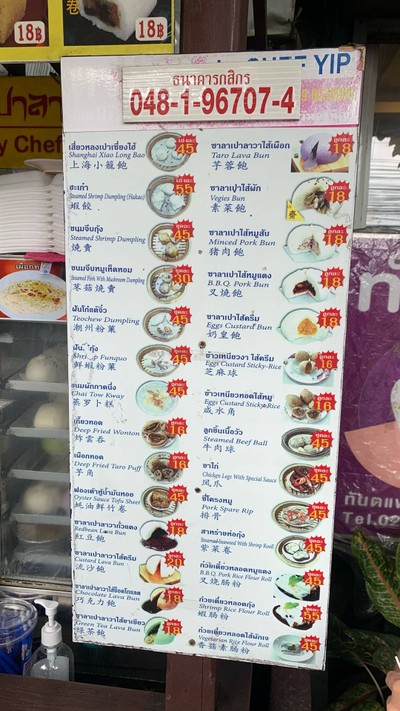 18฿
18฿
YIP
ธนาคารกสิกร
048-1-96707-4
y Chef
เสี่ยวหลงเปาเซี่ยงไฮ้
Shanghai Xiao Long Bao
上海小籠飽
45
ฮะเก๋า
Steamed Shrimp Dumpling (Hakao)
蝦餃
55
ขนมจีบกุ้ง
Steamed Shrimp Dumpling
燒賣
45
ขนมจีบหมูเห็ดหอม
Steamed Pork With Mushroom Dumpling
30
ฝันโก๋แต้จิ๋ว
Teochew Dumpling
潮州粉菓
45
กุ้ง
Funquo
鮮蝦粉菓
45
ขนมผักกาดนึ่ง
Chai Tow Kway
蒸罗卜糕
45
เกี๊ยวทอด
Deep Fried Wonton
炸雲吞
16
เผือกทอด
Deep Fried Taro Puff
芋角
16
ฟองเต้าหู้น้ำมันหอย
Oyster Sauce Tofu Sheet
蚝油鮮竹卷
45
ซาลาเปาลาวาถั่วแดง
Redbean Lava Bun
紅豆飽
18
ซาลาเปาลาวาไส้ครีม
Custard Lava Bun
流沙飽
20
ซาลาเปาลาวาไส้ช็อคโกแลต
Chocolate Lava Bun
巧克力飽
18
ซาลาเปาลาวาไส้ชาเขียว
Green Tea Lava Bun
綠茶飽
18
ซาลาเปาลาวาไส้เผือก
Taro Lava Bun
芋蓉飽
18
ซาลาเปาไส้ผัก
Vegies Bun
素菜飽
18
ซาลาเปาไส้หมูสับ
Minced Pork Bun
猪肉飽
18
ซาลาเปาไส้หมูแดง
B.B.Q. Pork Bun
叉燒飽
18
ซาลาเปาไส้ครีม
Eggs Custard Bun
奶皇飽
18
ข้าวเหนียวงา ไส้ครีม
Eggs Custard Sticky-Rice
芝麻球
16
ข้าวเหนียวทอดไส้หมู
Eggs Custard Sticky-Rice
咸水角
16
ลูกชิ้นเนื้อวัว
Steamed Beef Ball
牛肉球
45
ขาไก่
Chicken Legs With Special Sauce
凤爪
45
ซี่โครงหมู
Pork Spare Rip
排骨
45
สาหร่ายห่อกุ้ง
紫菜卷
45
ก๋วยเตี๋ยวหลอดหมูแดง
B.B.Q. Pork Rice Flour Roll
叉烧肠粉
45
ก๋วยเตี๋ยวหลอดกุ้ง
Shrimp Rice Flour Roll
蝦肠粉
55
ก๋วยเตี๋ยวหลอดไส้ผักเจ
Vegetarian Rice Flour Roll
香菇素肠粉
45